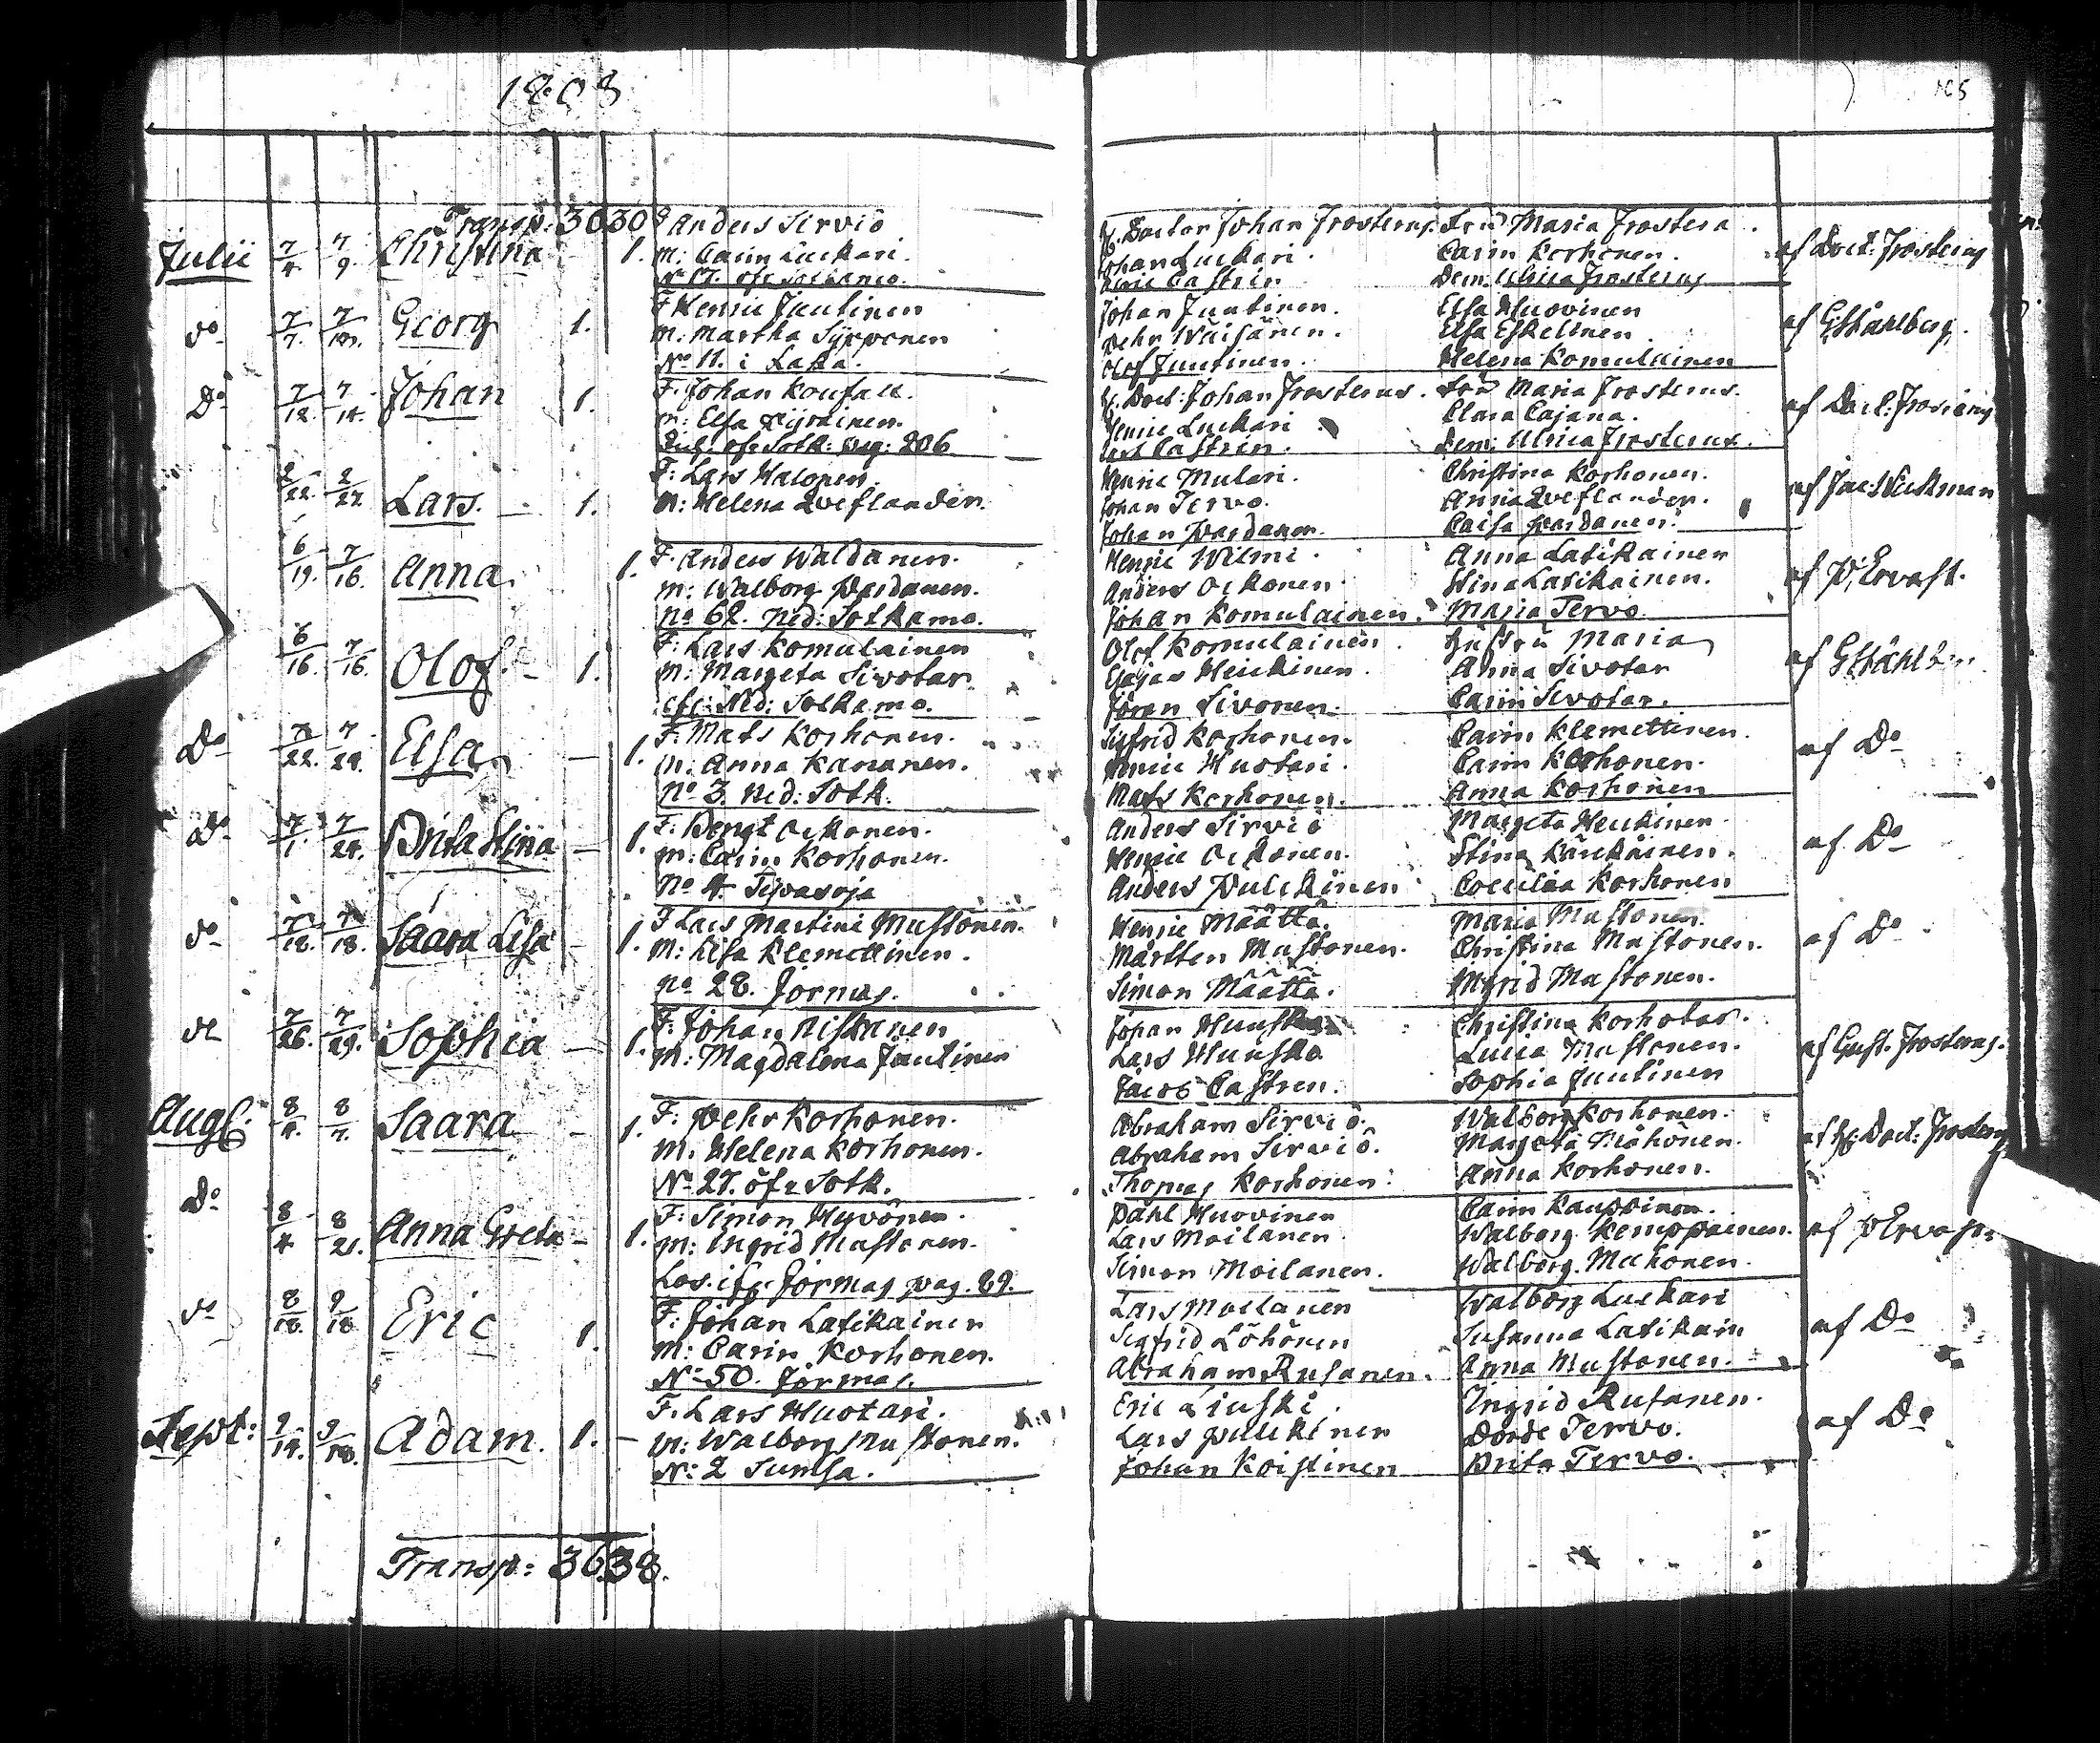 1808
105
Transp: 36 30
Julii 7/4. 7/9. Christina 1.
F Anders Sirviö
m: Carin Luckari.
No 17. öfr Sotkamo.
H. Doctor Johan Frosterus. Fru Maria Frostera.
Johan Luckari. Carin Korhonen.
Castrin Dem. Ulrica Frosterus
af Doct: Frosterus
do 7/7. 7/10. Georg 1.
F Henric Juutinen
m: Martha Sypponen
No 11. i Laka.
Johan Juutinen. Elsa Huovinen
Pehr Wäisänen. Elsa Eskelinen
Olof Juutinen. Helena Komulainen
af G Ståhlberg.
Do 7/12. 7/14. Johan 1.
F. Johan
m: Elsa
öfr Sotk: pag: 206
H. Doct: Johan Frosterus. Fru Maria Frosterus.
Henric Luckari Clara Cajana.
Castrin. Dem: Ulrica Frosterus.
af Doct: Frosterus
2/22. 2/27 Lars. 1.
F: Lars Halonen.
M: Helena Qveflander.
Henric Mulari. Christina Korhonen.
Johan Tervo. Anna Qveflander.
Johan Pardanen. Caisa Pardanen.
af Jac: Stickman
6/19. 7/16. Anna. 1.
F. Anders Waldanen.
m: Walborg Pardanen.
no 62. ned: Sotkamo.
Henric Wilmi. Anna Latikainen
Anders Ockonen Stina Latikainen.
Johan Komulainen. Maria Tervo.
af P. Ervast.
6/16. 7/16. Olof 1.
F: Lars Komulainen
m: Margeta Sivotar
Ned: Sotkamo.
Olof Komulainen. Hustru Maria
Heickinen. Anna Sivotar
Jöran Sivonen. Carin Sivotar.
af G Ståhlb
Do 7/22. 7/24. Elsa 1.
F: Mats Korhonen.
m. Anna Kananen.
No 3. ned: Sotk.
Sigfrid Korhonen. Carin Klemettinen.
Henric Huotari. Carin Korhonen.
Mats Korhonen. Anna Korhonen
af Do
Do 7/1. 7/24. Brita Stina 1.
F: Bengt Ockonen.
m: Carin Korhonen.
no 4. Tipasoja
Anders Sirviö Margeta Heickinen.
Henric Ockonen. Stina Kärckäinen.
Anders Pulckinen Coecilia Korhonen
af Do
do 7/18. 7/18. Saara Lisa 1.
F Lars Martini Mustonen.
M: Lisa Klemettinen.
no 28. Jormas.
Henric Määttä. Maria Mustonen.
Mårtten Mustonen. Christina Mustonen.
Simon Määttä. Ingrid Mustonen.
af Do
7/26. 7/29. Sophia 1.
F: Johan Niskanen
M: Magdalena Juutinen
Johan Huusko Christina Korhotar.
Lars Huusko Lucia Mustonen.
Jacob Castren. Sophia Juutinen
af Gust. Frosterus.
Aug. 8/4. 8/7. Saara 1.
F: Pehr Korhonen.
m. Helena Korhonen.
No 27. öfr Sotk.
Abraham Sirviö. Walborg Korhonen.
Abraham Sirviö. Margeta
Thomas Korhonen. Anna Korhonen.
af H: Doct: Frosterus
Do 8/4 8/21. Anna Greta 1.
F: Simon Hyvönen.
m: Ingrid Mustonen.
Los. Jormas pag. 89.
Påhl Huovinen Carin Kauppinen.
Lars Moilanen Walborg Kemppainen.
Simon Moilanen. Walborg
af P Ervast
do 8/18. 9/18 Eric 1.
F: Johan Latikainen
M: Carin Korhonen.
No 50. Jormas.
Lars Moilanen Walborg Luckari
Sigfrid Löhönen Susanna Latikain
Abraham Rusanen. Anna Mustonen.
af Do
Sept: 9/14. 9/18. Adam. 1.
F. Lars Huotari.
m: Walborg Mustonen.
No 2 Sumsa.
Eric Liuski. Ingrid Rusanen.
Lars Pulckinen Dorde Tervo.
Johan Koistinen Brita Tervo.
af Do
Transp: 36 38.